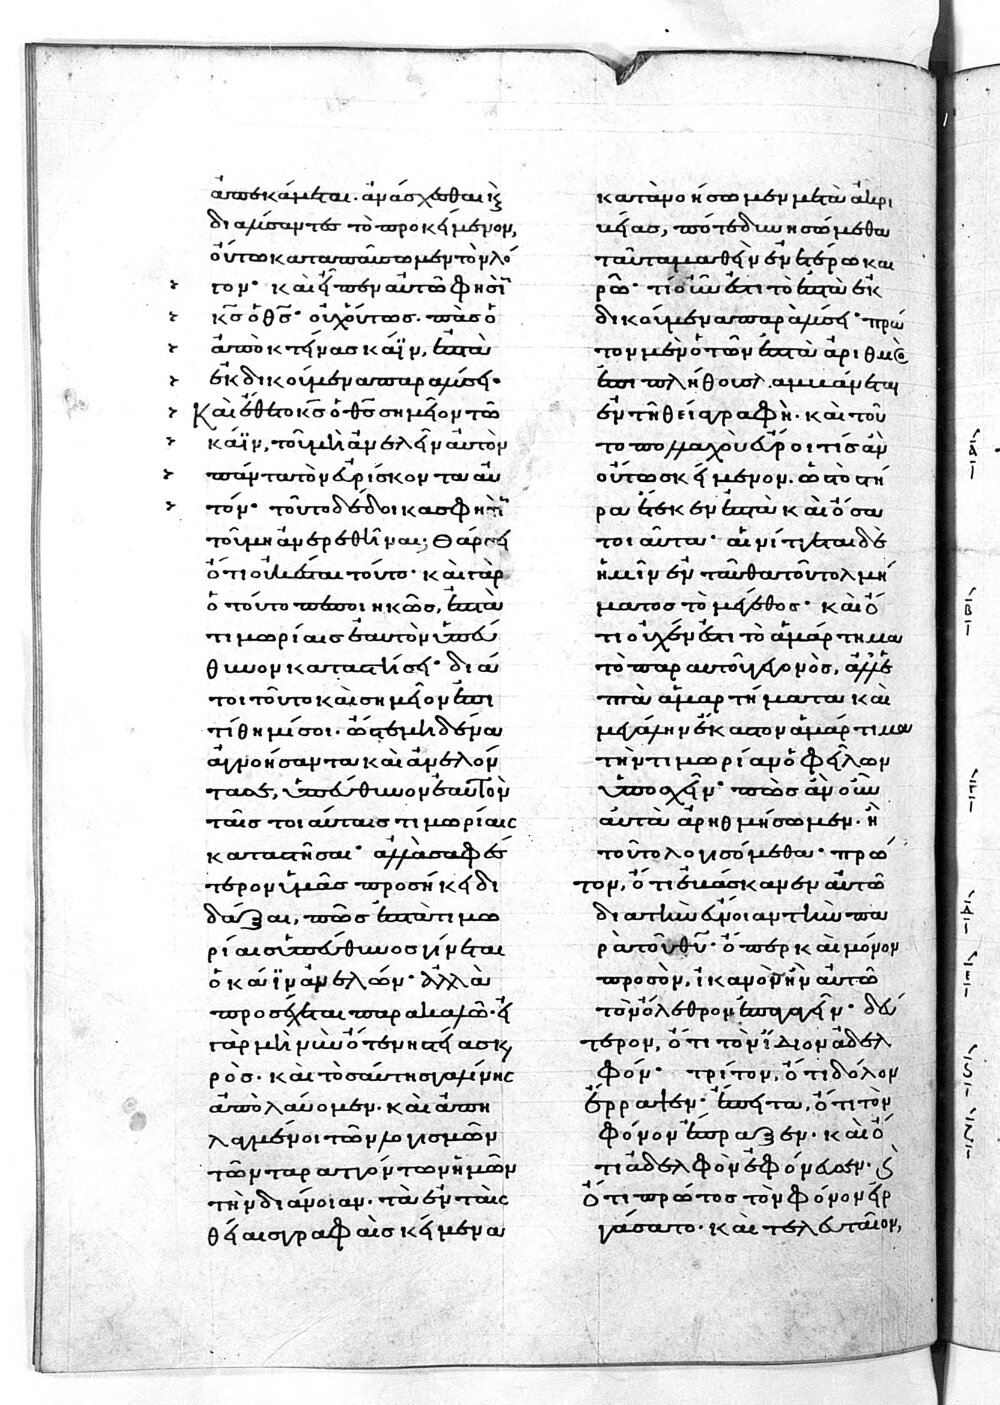 ἀπεκάμεται. ἀνάσχεσθαι
διαλύσαντες τὸ προκείμενον,
οὕτω καταπαύσωμεν τὸν λό
γον· καὶ εἶπεν αὐτῶ φησὶ
κς ὁ θς· οὐχ οὕτως. πᾶς ὁ
ἀποκτείνας κάϊν, ἑπτὰ
ἐκδικούμενα παραλύσει·
Καὶ ἔθετο κς ὁ θς σημεῖον τῶ
κάϊν, τοῦ μὴ ἀνελεῖν αὐτὸν
πάντα τὸν εὑρίσκοντα αὐ
τόν· τοῦτο δέδοικας φησὶ
τοῦ μὴ ἀναιρεθῆναι; Θάρσει
ὅτι οὐκ ἔσται τοῦτο· καὶ γὰρ
ὁ τοῦτο πεποιηκὼς, ἑπτὰ
τιμωρίαις ἑαυτὸν ὑπεύ
θυνον καταστήσει· διά
τοι τοῦτο καὶ σημεῖον ἐπι
τίθημί σοι. ὥστε μηδένα
ἀγνοήσαντα καὶ ἀνελόν
τα σε, ὑπεύθυνον ἑαυτὸν
ταῖς τοιαύταις τιμωρίαις
καταστῆσαι· ἀλλὰ σαφέσ
τερον ὑμᾶς προσήκε δι
δάξαι, πῶς ἑπτὰ τιμω
ρίαις ὑπεύθυνος γίνεται
ὁ κάϊν ἀνελών· ἀλλὰ
προσέχεται παρακαλῶ· εἰ
γὰρ μὴ νῦν ὅτε νηστείας και
ρὸς. καὶ τοσαύτης γαλήνης
ἀπολαύομεν. καὶ ἀπη
λαγμένοι τῶν λογισμῶν
τῶν ταραττόντων ἡμῶν
τὴν διάνοιαν. τὰ ἐν ταῖς
θείαις γραφαῖς κείμενα
κατανοήσωμεν μετὰ ἀκρι
βείας, πότε δυνησώμεθα
ταῦτα μαθεῖν ἐν ἑτέρω και
ρῶ· τί οὖν ἐστι τὸ ἑπτὰ ἐκ
δικούμενα παραλύσει· πρῶ
τον μὲν ὁ τῶν ἑπτὰ ἀριθμὸς
ἐπὶ πλήθους λαμβάνεται
ἐν τῆ θεία γραφῆ. καὶ τοῦ
το πολλαχοῦ εὕροι τὶς ἂν
οὕτως κείμενον. ὡς τὸ στεῖ
ρα ἔτεκεν ἑπτὰ καὶ ὅσα
τοιαῦτα· αἰνίττεται δὲ
ἡμῖν ἐνταῦθα τοῦ τολμή
ματος τὸ μέγεθος· καὶ ὅ
τι οὐχ ἕν ἐστι τὸ ἁμάρτημα
τὸ παρ αυτοῦ γεγονὸς, ἀλλ ἑ
πτὰ ἁμαρτήματα καὶ
μεγάλην ἕκαστον ἁμάρτημα
τὴν τιμωρίαν ὀφεῖλων
ὑποσχεῖν· πῶς ἂν οὖν
αὐτὰ ἀρηθμήσωμεν. ἢ
τοῦτο λογισόμεθα· πρῶ
τον, ὅτι ἐβάσκανεν αὐτῶ
διὰ τὴν εὔνοιαν τὴν πα
ρὰ τοῦ θῦ· ὅπερ καὶ μόνον
προσὸν, ἱκανὸν ἦν αὐτῶ
τὸν ὄλεθρον ἐπαγαγεῖν· δεύ
τερον, ὅτι τὸν ἴδιον ἀδελ
φόν· τρίτον, ὅτι δόλον
ἔρραψεν· ἔπειτα, ὅτι τὸν
φόνον ἔπραξεν. καὶ ὅ
τι ἀδελφὸν ἐφόνευσεν. ς
ὅτι πρῶτος τὸν φόνον εἰρ
γάσατο. καὶ τελευταῖον,